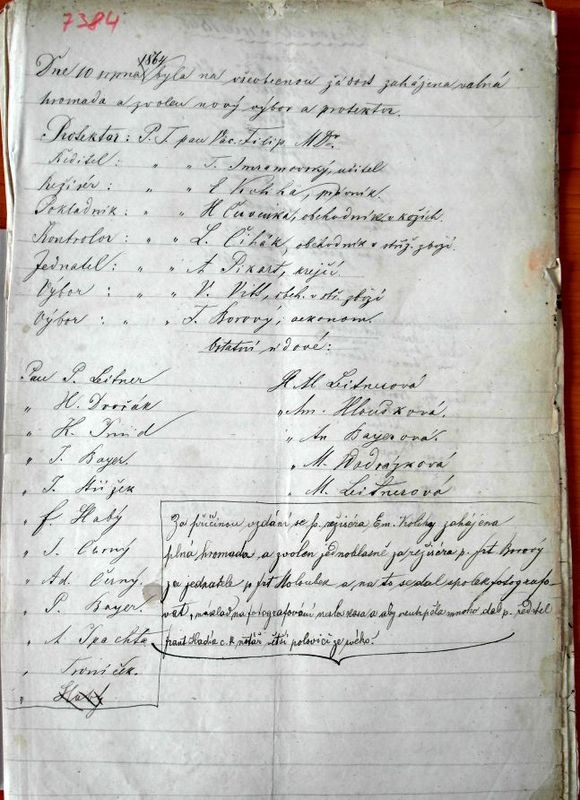 7384
1864
Dne 10 srpna byla na všeobecnou žádost zahájena valná
hromada a zvolen nový výbor a protektor.
Protektor: P. T. pan Vác. Filip MDr.
Ředitel: " " T. učitel
Režisér: " " E právník.
Pokladník: " " H Červenka, obchodník v kožich.
Kontrolor: " " L. Čihák, obchodník v střiž. zboží
Jednatel: " " A Pikart, krejčí.
Výbor: " " V. obch. v stř. zboží
Výbor: " " F. Borový, oekonom.
Ostatní údové:
Pan P. Leitner
" H. Dvořák
" K.
" J. Bayer.
" J.
" F. Slabý
" J. Černý
" Ad. Černý.
" P. Bayer.
" A Špachta
"
" Slabý
M Leitnerová
" An. Hloušková.
" An Bayerová.
" M.
" M. Leitnerová
Za příčinou vzdání se p. režiséra Em. zahájena
plná hromada a zvolen jednohlasně za režiséra p. frt Borový
za jednatele p. frt Holoubek a na to se dal spolek fotografo-
vat, náklad na fotografování nesla kasa a aby neutrpěla mnoho dal p. ředitel
frant c. k. notář větší polovici ze svého!